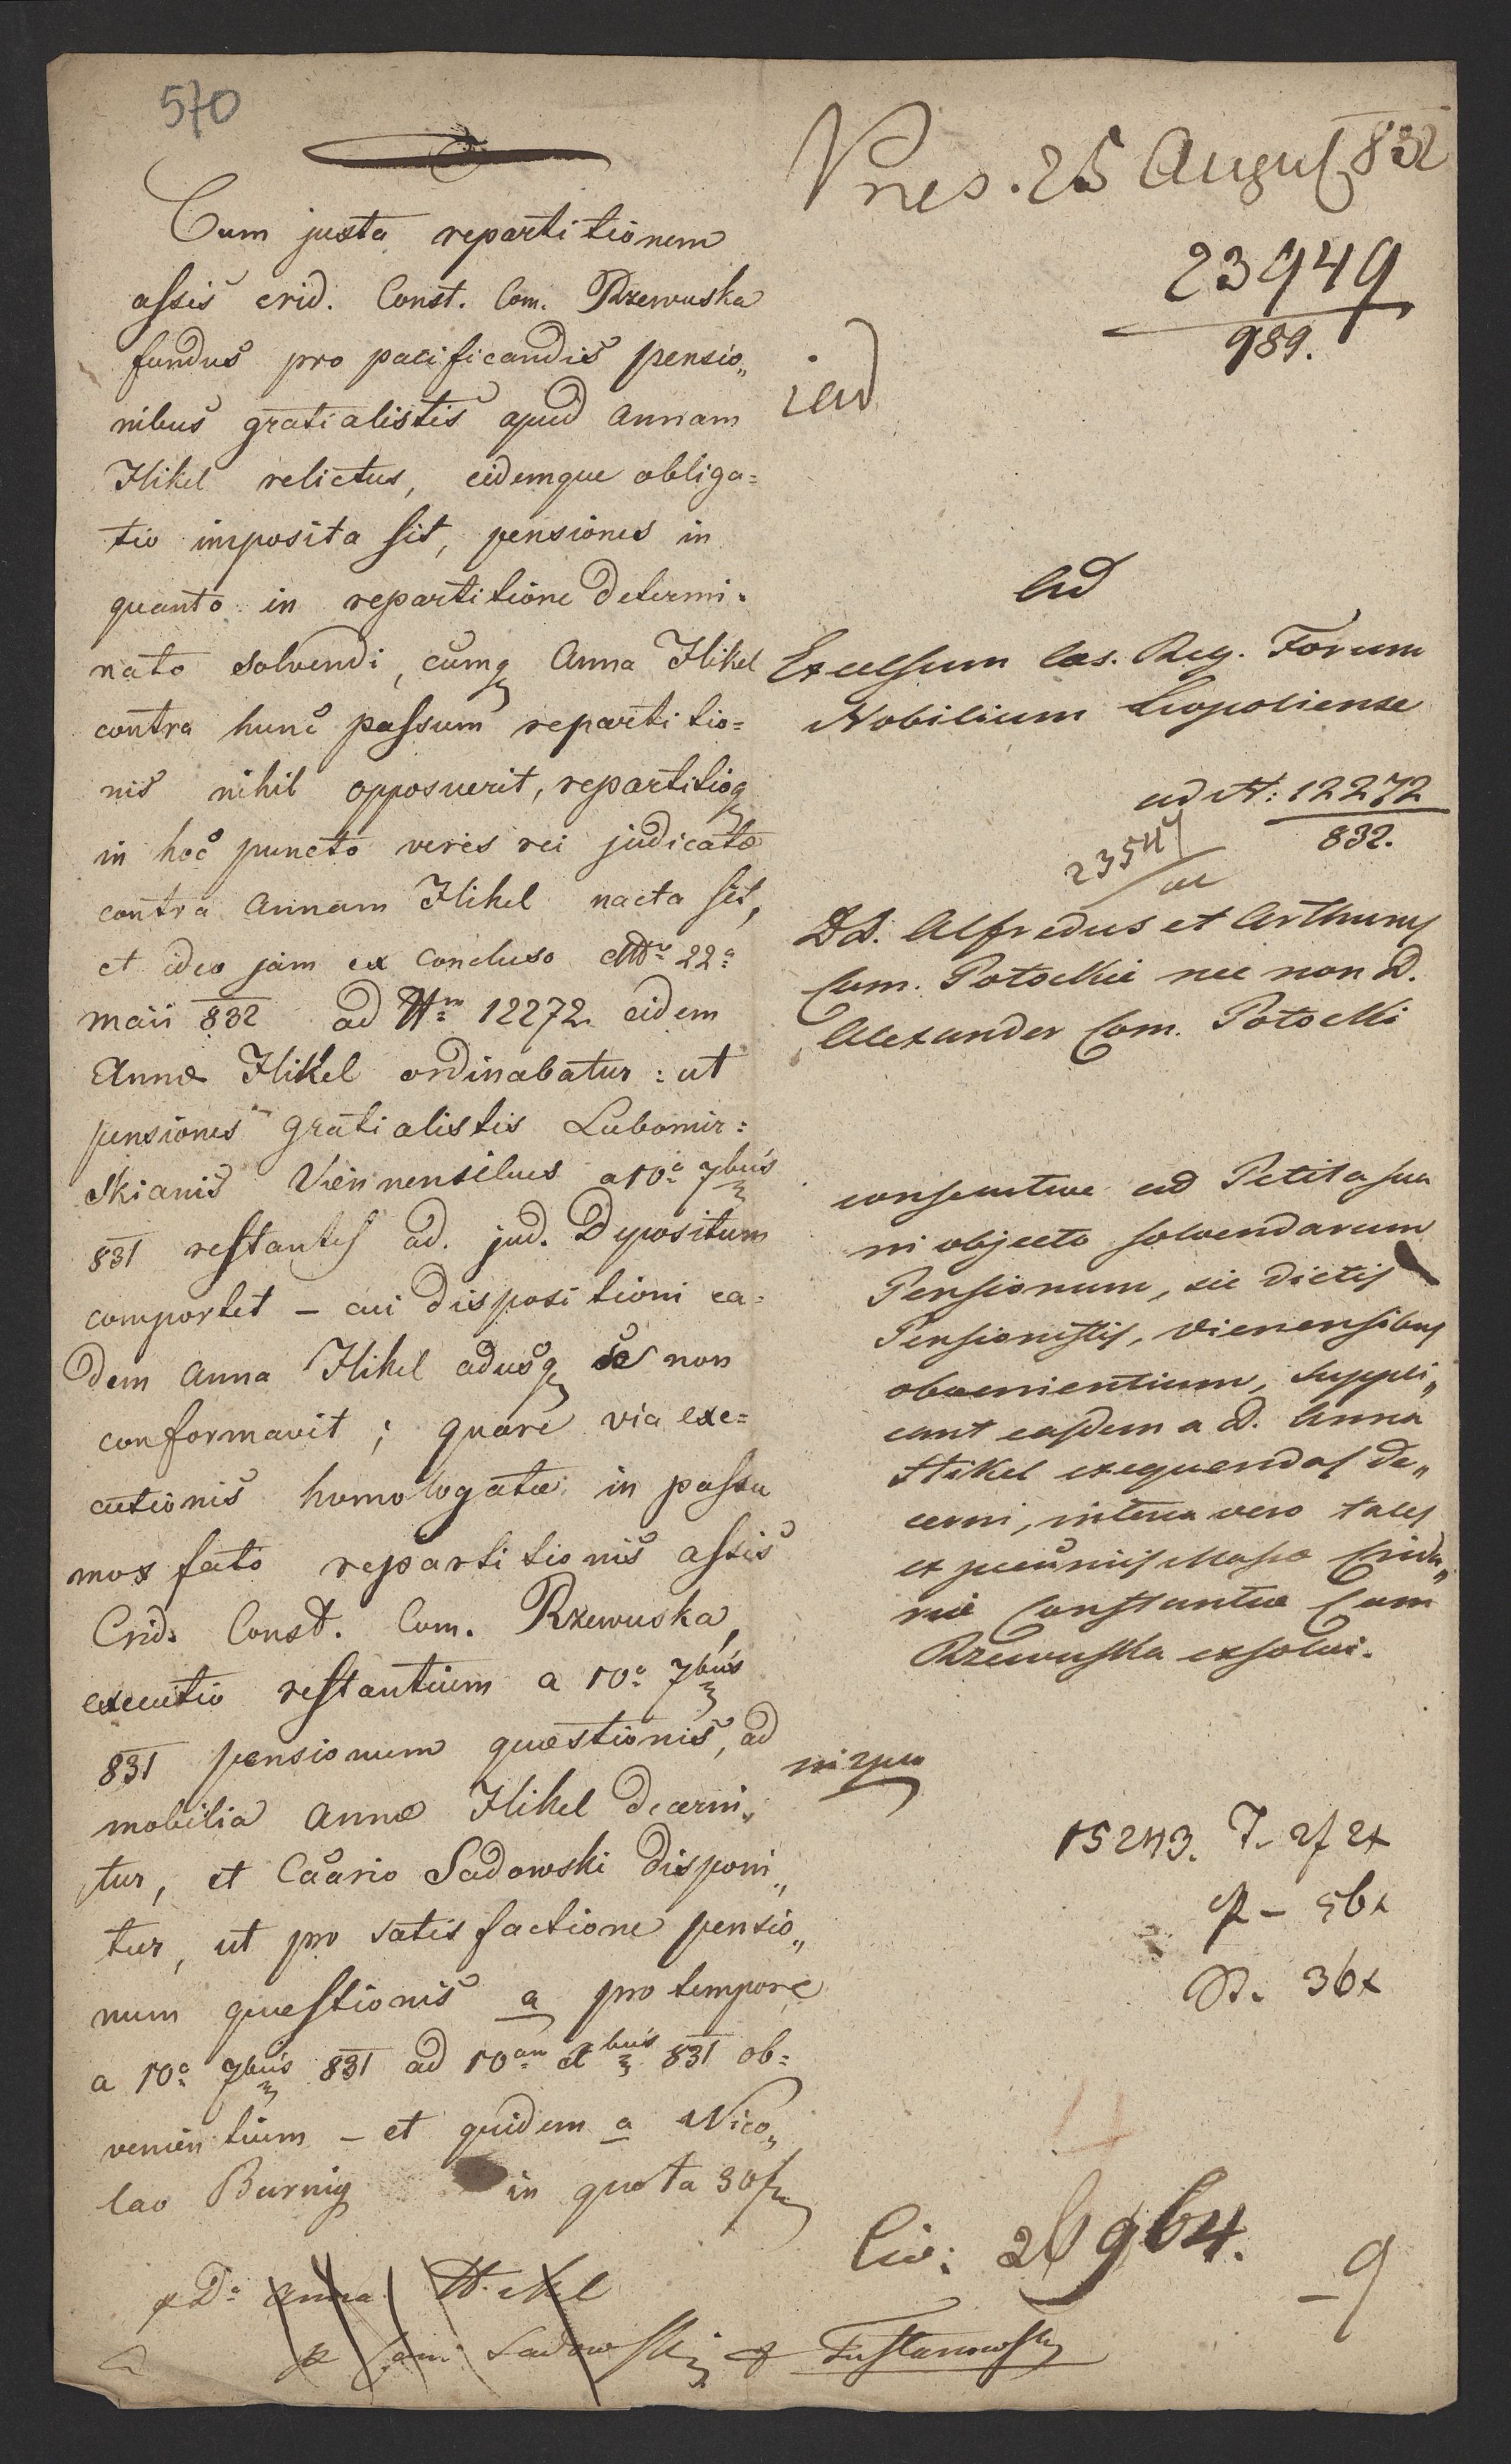 570
Cum juxta repartitionem
assis crid. Const. Com. Rzewuska
fundus pro pacificandis pensio„
nibus gratialistis apud Annam
Hikel relictus, eidemque obliga=
tio imposita sit, pensiones in
quanto in repartitione determi=
nato solvendi, cumq Anna Hikel
contra hunc passum repartitio=
nis nihil opposuerit, repartitioq
in hoc puncto vires rei judicatæ
contra Annam Hikel nacta sit,
et ideo jam ex concluso dtto 22a
maii 832 ad Nm 12272 eidem
Annæ Hikel ordinabatur: ut
pensiones gratialistis Lubomir=
skianis Viennensibus a 10a 7bris
831 restantes ad. jud. Depositum
comportet – cui dispositioni ea=
dem Anna Hikel adusq se non
conformavit; quare via exe=
cutionis homologatæ in passu
mox fato repartitionis assis
Crid. Const. Com. Rzewuska,
executio restantium a 10a 7bris
831 pensionum quæstionis, ad
mobilia Annæ Hikel decerni„
tur, et Caario Sadowski disponi„
tur, ut pro satisfactione pensio„
num quæstionis a pro tempore
a 10a 7bris 831 ad 10am Xbris 831 ob=
venientium – et quidem a Nico„
lao Burnig in quota 30 f
Da Anna Hikel
Sadowski
Pres. 25 August 832
23949
989.
Ad
Excelsum Cæs. Reg. Forum
Nobilium Leopoliense
ad N: 12272
832.
23547
DD. Alfredus et Arthurus
Com. Potockie nec non D.
Alexander Com. Potocki
consecutive ad Petita sua
in objecto solvendarum
Pensionum, sic dictis
Pensionistis, Vienensibus
obvenientium, suppli„
cant easdem a D. Anna
Hikel exequendas de„
cerni, interea vero tales
ex pecuniis Massæ Crida„
riæ Constantiæ Com
Rzewuska exsolvi.
15243. T. 2f 2x
56x
36x
Civ: 26964.
– 9